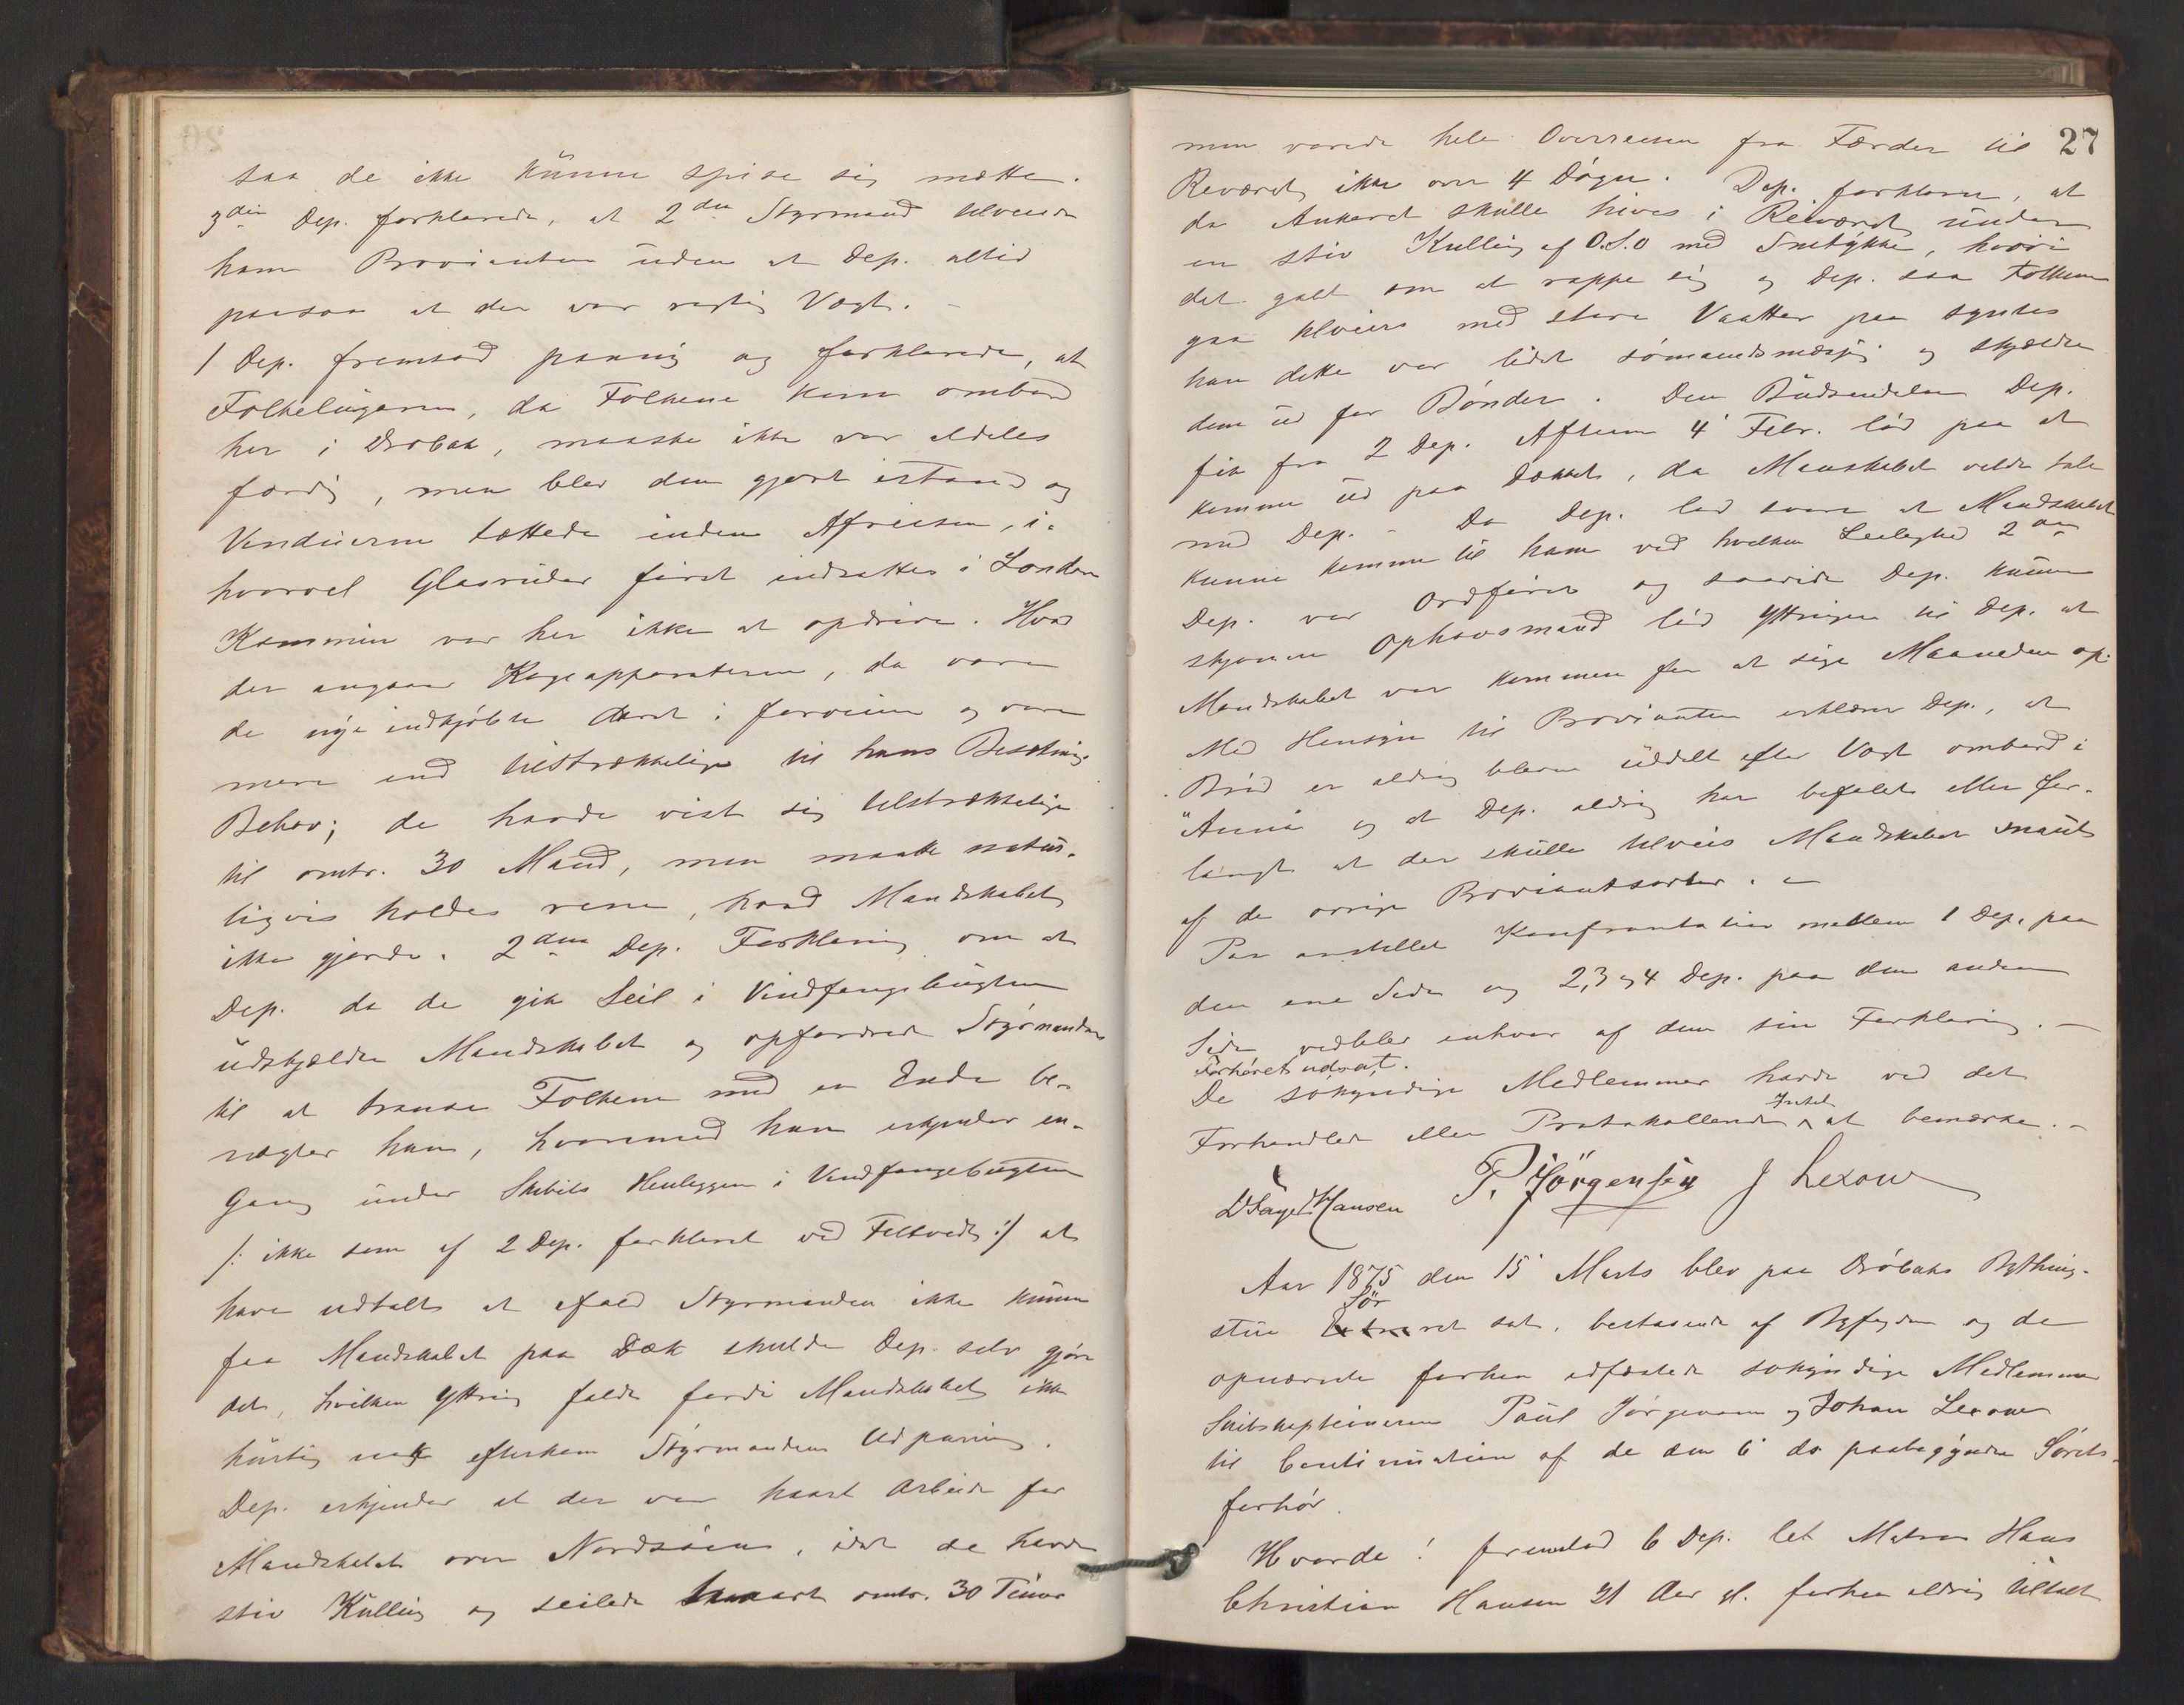 saa de ikke kunne spise sig mætte.
3die Dep. forklarede, at 2den Styrmand udveiede
ham Provianten uden at Dep. altid
paasaa at der var rigtig Vægt. –
1 Dep. fremstod paany og forklarede, at
Folkelugaren, da Folkene kom ombord
her i Drøbak, maaske ikke var aldeles
færdig, men blev den gjort istand og
Vinduerne tættede inden Afreisen, i-
hvorvel Glasruder først indsattes i London
Kammin var her ikke at opdrive. Hvad
der angaar Kogeapparaterne, da vare
de nye indkjøbte Aaret i forveien og vare
mere end tilstrækkelige til hans Besætnings
Behov; de havde vist sig tilstrækkelige
til omtr. 30 Mand, men maatte natur-
ligvis holdes rene, hvad Mandskabet
ikke gjorde. 2den Dep. Forklaring om at
Dep. da de gik Seil i Vindfangebugten
udskjældte Mandskabet og opfordrede Styrmanden
til at banke Folkene med en Ende be-
nægter han, hvorimod han erkjender en-
gang under Skibets Henliggen i Vindfangebugten
/: ikke som af 2 Dep. forklaret ved Filtvedt :/ at
have udtalt at ifald Styrmanden ikke kunde
faa Mandskabet paa Dæk skulde Dep. selv gjøre
det, hvilken Yttring faldt fordi Mandskabet ikke
hurtig nok efterkom Styrmandens Udpurring.
Dep. erkjender at der var haart Arbeide for
Mandskabet over Nordsøen, idet de havde
stiv Kulling og seilede omtr. 30 Timer
27
men varede hele Overreisen fra Færder til
ikke over 4 Døgn. Dep. forklarer, at
da Ankeret skulde hives i under
en stiv Kulling af O.S.O med Snetykke, hvori
det galt om at rappe sig og Dep. saa Folkene
gaa med store Vaatter paa syntes
han dette var lidet sømandsmæssig og skjældte
dem ud for Bønder. Den Budsendelse Dep.
fik fra 2 Dep. Aftenen 4 Febr. lød paa at
komme ud paa Dækket, da Manskabet vilde tale
med Dep. – Da Dep. lod svare at Mandskabet
kunne komme til ham ved hvilken Leilighed 2den
Dep. var Ordfører og saavidt Dep. kunne
skjønne Ophavsmand lød Yttringen til Dep. at
Mandskabet var kommen for at sige Maaneden op.
Med Hensyn til Provianten erklærer Dep., at
Brød er aldrig bleven uddelt efter Vægt ombord i
"Anna" og at Dep. aldrig har befalet eller for-
langt at der skulde udveies Mandskabet
af de øvrige Proviantsorter. –
Paa anstillet Konfrontation mellem 1 Dep. paa
den ene Side og 2, 3 og 4 Dep. paa den anden
Side vedblev enhver af dem sin Forklaring. –
Forhøret udsat.
De søkyndige Medlemmer havde ved det
Forhandlede eller Protokollerede Intet at bemærke. –
Hansen P. Jörgensen J Lexow
Aar 1875 den 15 Marts blev paa Drøbaks Bything-
stue Sø ret sat, bestaaende af Byfogden og de
opnævnte forhen edfæstede søkyndige Medlemmer
Skibskapteinerne Paul Jørgensen og Johan Lexow
til Continuation af de den 6 ds paabegyndte Sørets-
forhør.
Hvorda! fremstod 6 Dep. let Matros Hans
Christian Hansen 21 Aar gl. forhen aldrig tiltalt